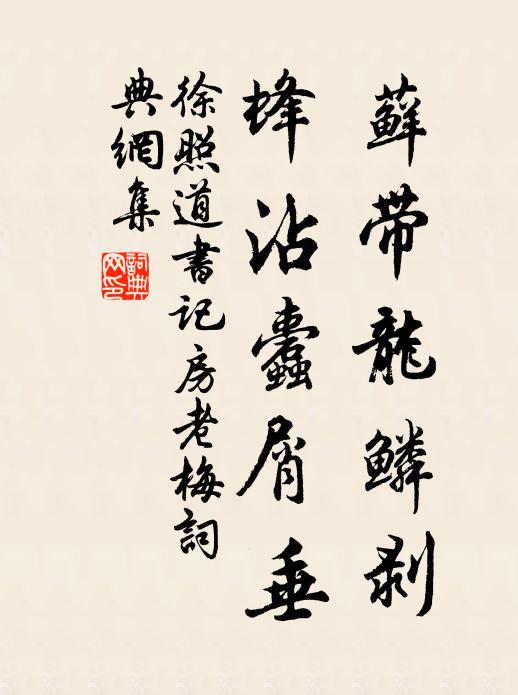 蘚帶龍鱗剥
蜂沾蠹屑垂
徐照道書記房老梅詞
典網集
詞典網印